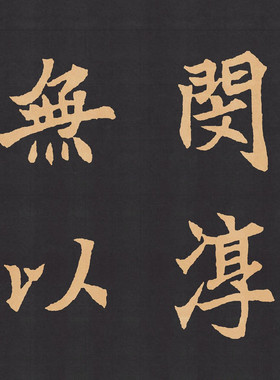 閔淳
無以